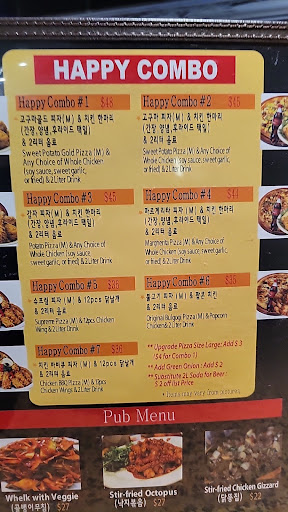 HAPPY COMBO
Happy Combo #1 $48
고구마골드 피자(M) & 치킨 한마리
(간장,양념,후라이드 택일)
& 2리터 음료
Sweet Potato Gold Pizza (M) &
Any Choice of Whole Chicken
(soy sauce, sweet garlic,
or fried) & 2 Liter Drink
Happy Combo #2 $45
고구마 피자(M) & 치킨 한마리
(간장,양념,후라이드 택일)
& 2리터 음료
Sweet Potato Pizza (M) & Any Choice of
Whole Chicken (soy sauce, sweet garlic,
or fried) & 2 Liter Drink
Happy Combo #3 $45
감자 피자(M) & 치킨 한마리
(간장,양념,후라이드 택일)
& 2리터 음료
Potato Pizza (M) & Any Choice of
Whole Chicken (soy sauce,
sweet garlic, or fried) & 2 Liter Drink
Happy Combo #4 $41
마르게리타 피자(M) & 치킨 한마리
(간장,양념,후라이드 택일)
& 2리터 음료
Margherita Pizza (M) & Any Choice of
Whole Chicken (soy sauce,
sweet garlic, or fried) & 2 Liter Drink
Happy Combo #5
수프림 피자 (M) & 12pcs 닭날개
& 2리터 음료
Supreme Pizza (M) & 12pcs Chicken
Wing & 2 Liter Drink
Happy Combo #6
불고기 피자 (M) & 팝콘 치킨
& 2리터 음료
Original Bulgogi Pizza (M) & Popcorn
Chicken & 2 Liter Drink
Happy Combo #7 $36
치킨 바비큐 피자 (M) & 12pcs 닭날개
& 2리터 음료
Chicken BBQ Pizza (M) & 12pcs
Chicken Wings & 2 Liter Drink
** Upgrade Pizza Size Large: Add $ 3
($4 for Combo 1)
** Add Green Onion : $ 2
** Substitute 2L Soda for Beer :
$ 2 off list Price
Pub Menu
Whelk with Veggie
(골뱅이무침) $27
Stir-fried Octopus
(낙지볶음) $27
Stir-fried Chicken Gizzard
(닭똥집) $22